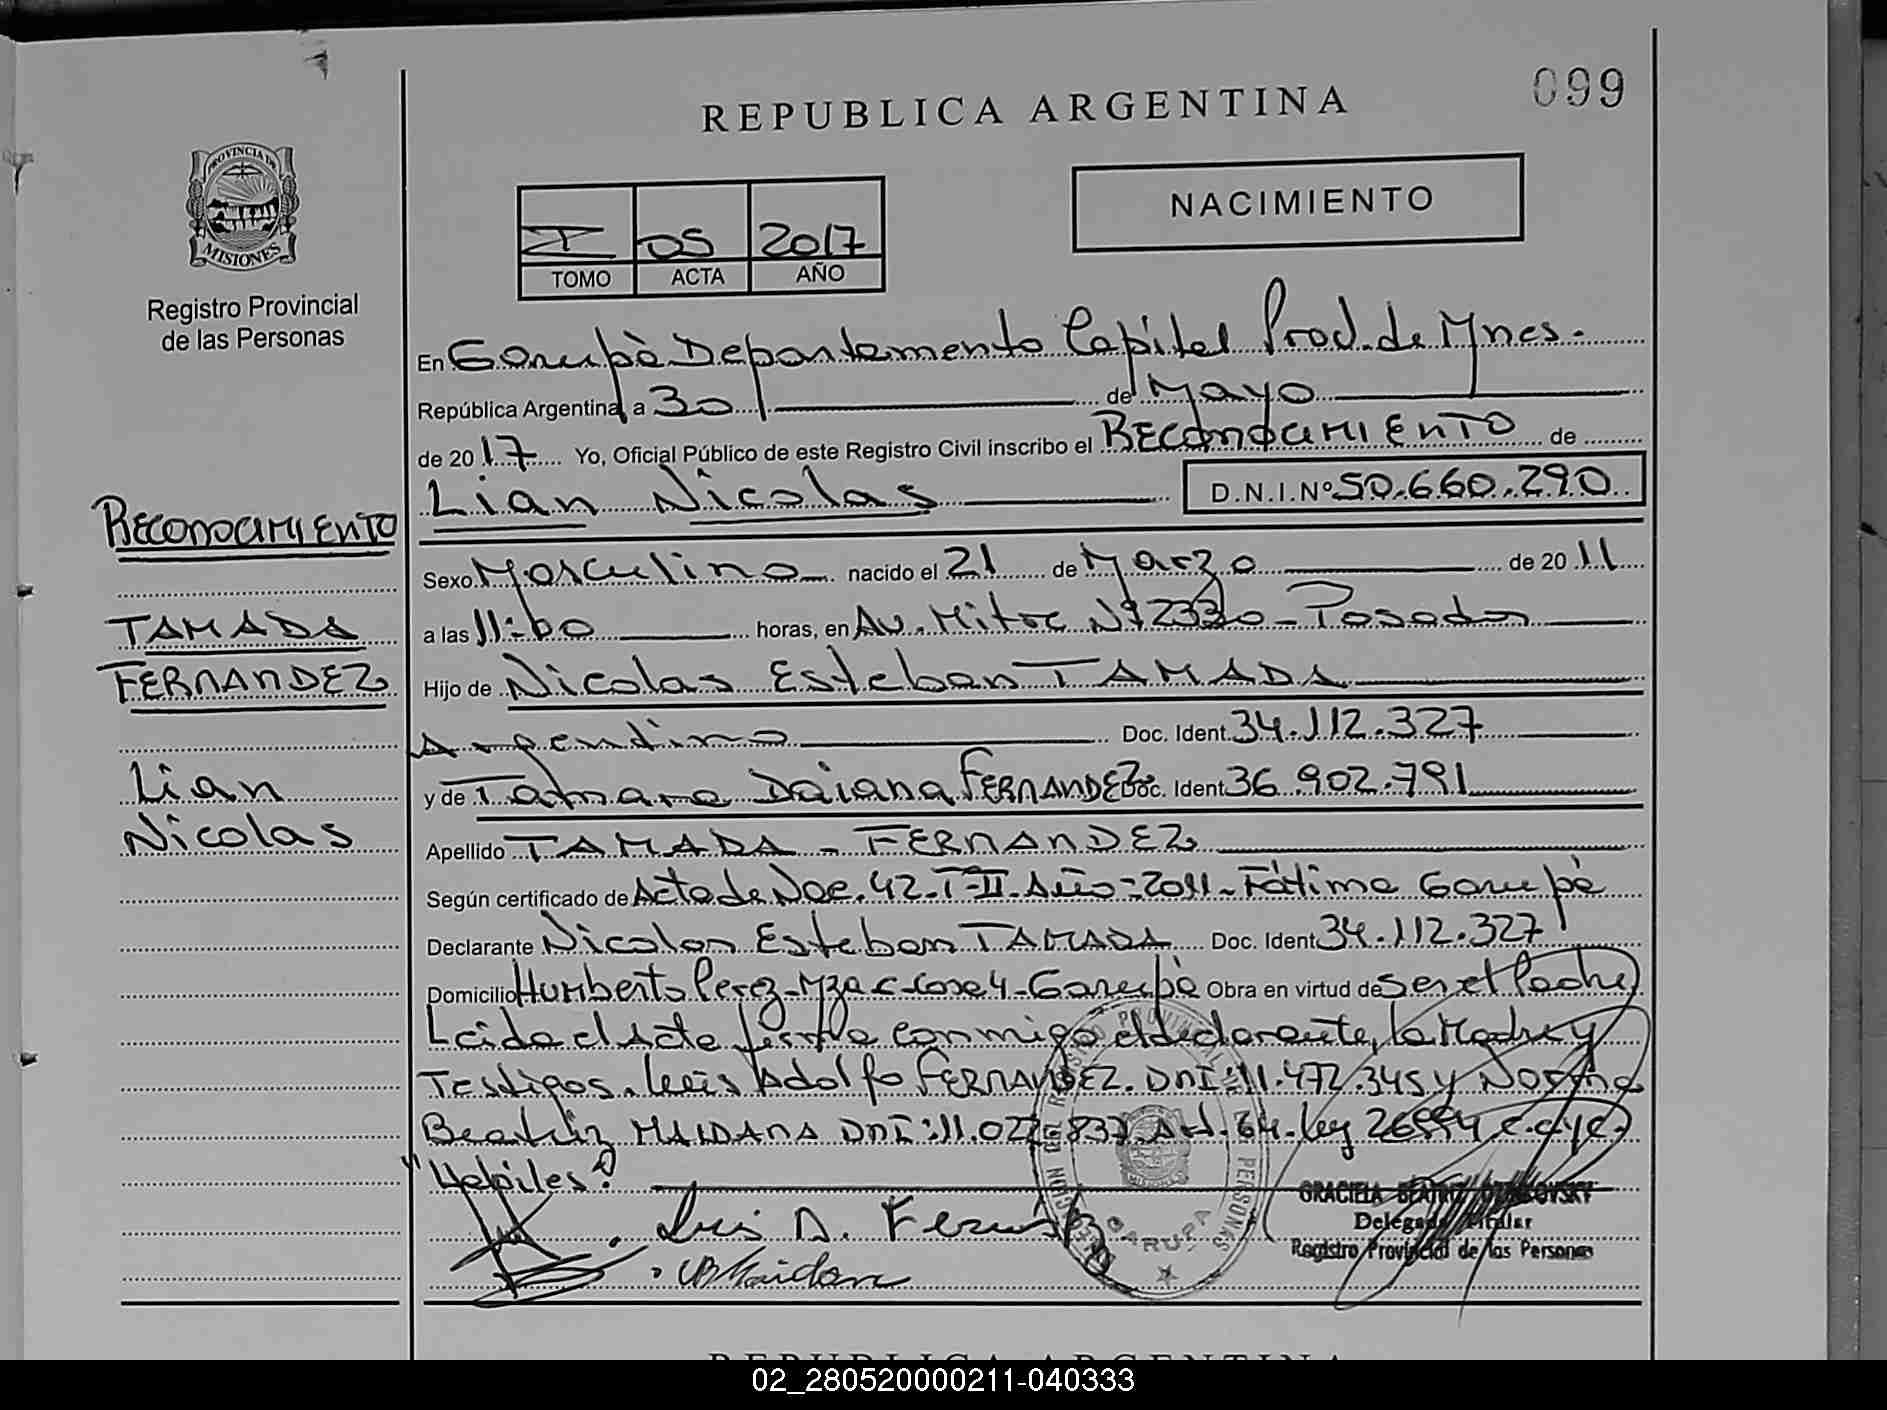 099
REPUBLICA ARGENTINA
NACIMIENTO
PROVINCIA DE
MISIONES
Registro Provincial
de las Personas
I 05 2017
TOMO ACTA AÑO
En Garupà Departamento Capital Prov. de Mnes.-
República Argentina, a 30 de Mayo
de 2017 Yo, Oficial Público de este Registro Civil inscribo el RECONOCIMIENTO de
Lian Nicolas D.N.I.Nº 50.660.290
RECONOCIMIENTO
TAMADA
FERNANDEZ
Lian
Nicolas
Sexo Masculino nacido el 21 de Marzo de 2011
a las 11:00 horas, en Av. Mitre Nº 2330 - Posadas
Hijo de Nicolas Esteban TAMADA
Argentino Doc. Ident. 34.112.327
y de Tamara Daiana FERNANDEZ Doc. Ident. 36.902.791
Apellido TAMADA - FERNANDEZ
Según certificado de Acta de Nac. 42-T-II-Año-2011-Fátima Garupà
Declarante Nicolas Esteban TAMADA Doc. Ident. 34.112.327
Domicilio Humberto Perez-Mza C-Casa 4-Garupà Obra en virtud de ser el Padre
Leida el Acta firma conmigo el declarante, la Madre y
Testigos. Luis Adolfo FERNANDEZ. DNI:11.472.345 y Norma
Beatriz MAIDANA DNI:11.022.837. Art. 64. ley 26994 c.c y c.
"Hábiles"
Luis A.
GRACIELA BEATRIZ
Delegada Titular
Registro Provincial de las Personas
GARUPA
REPUBLICA ARGENTINA
02_280520000211-040333